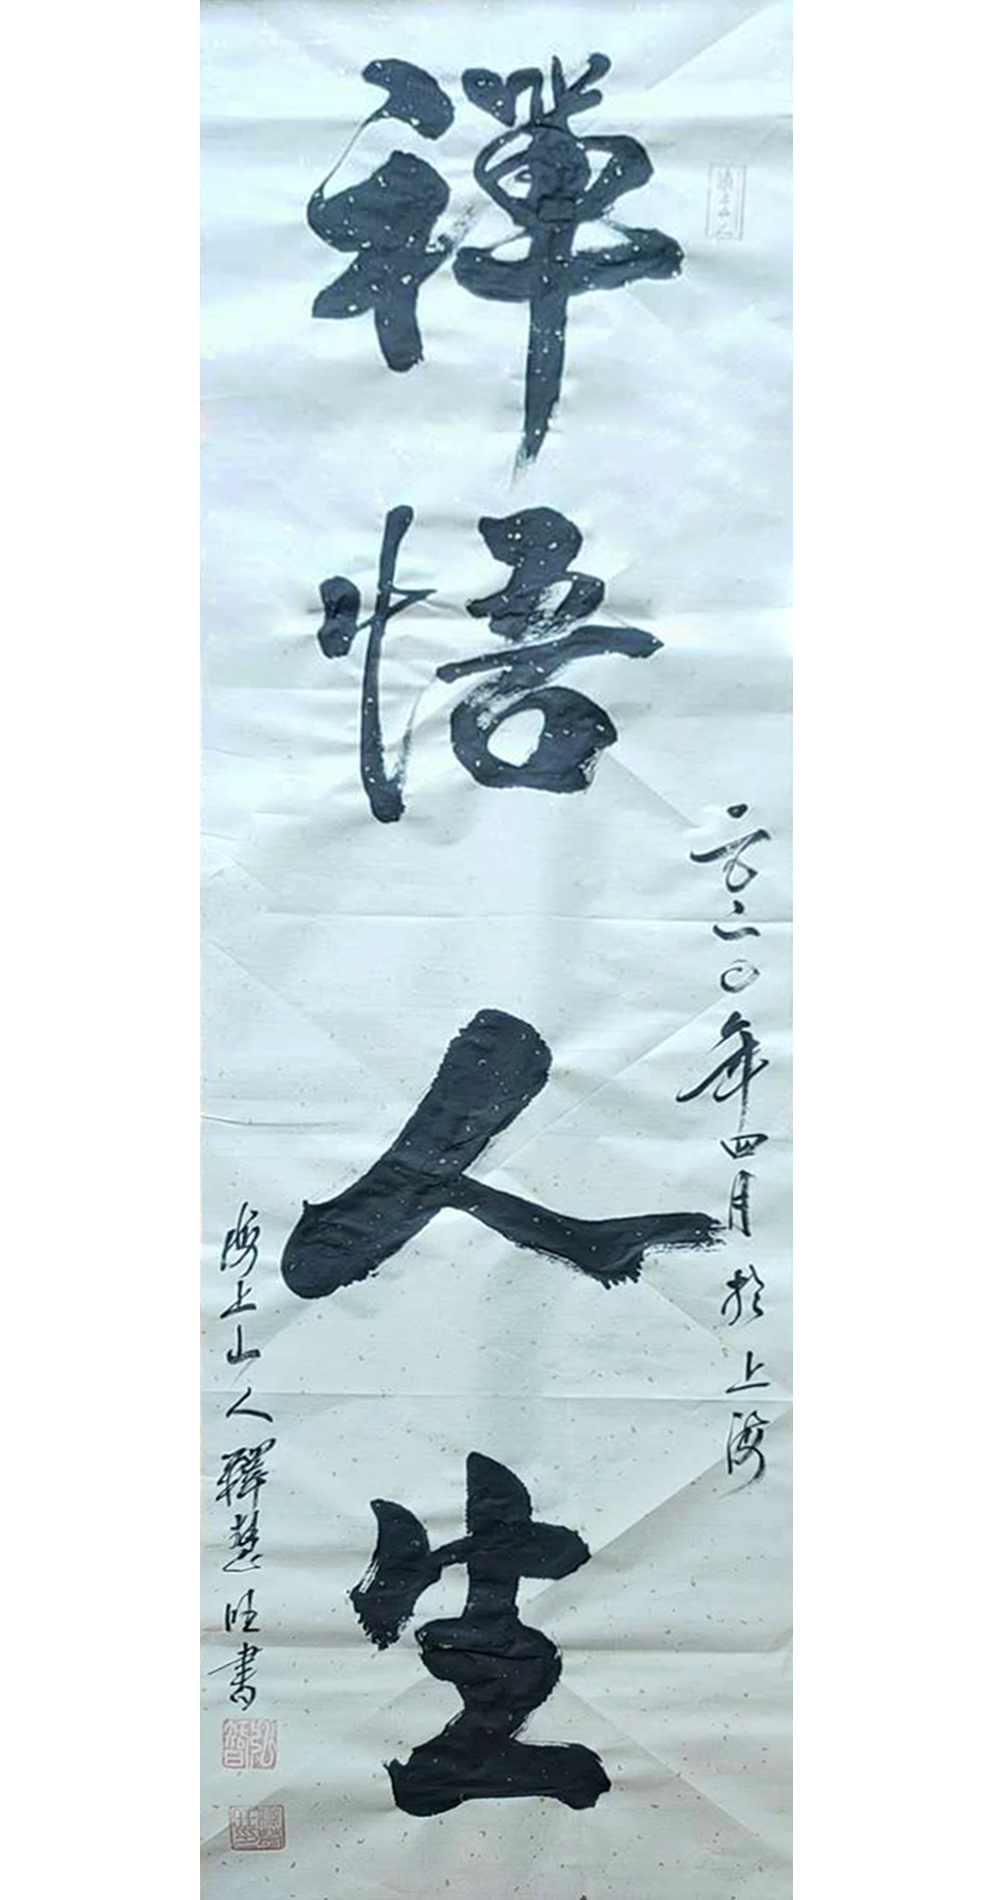 禪悟人生
二〇二〇年四月於上海
海上山人釋慧旺書